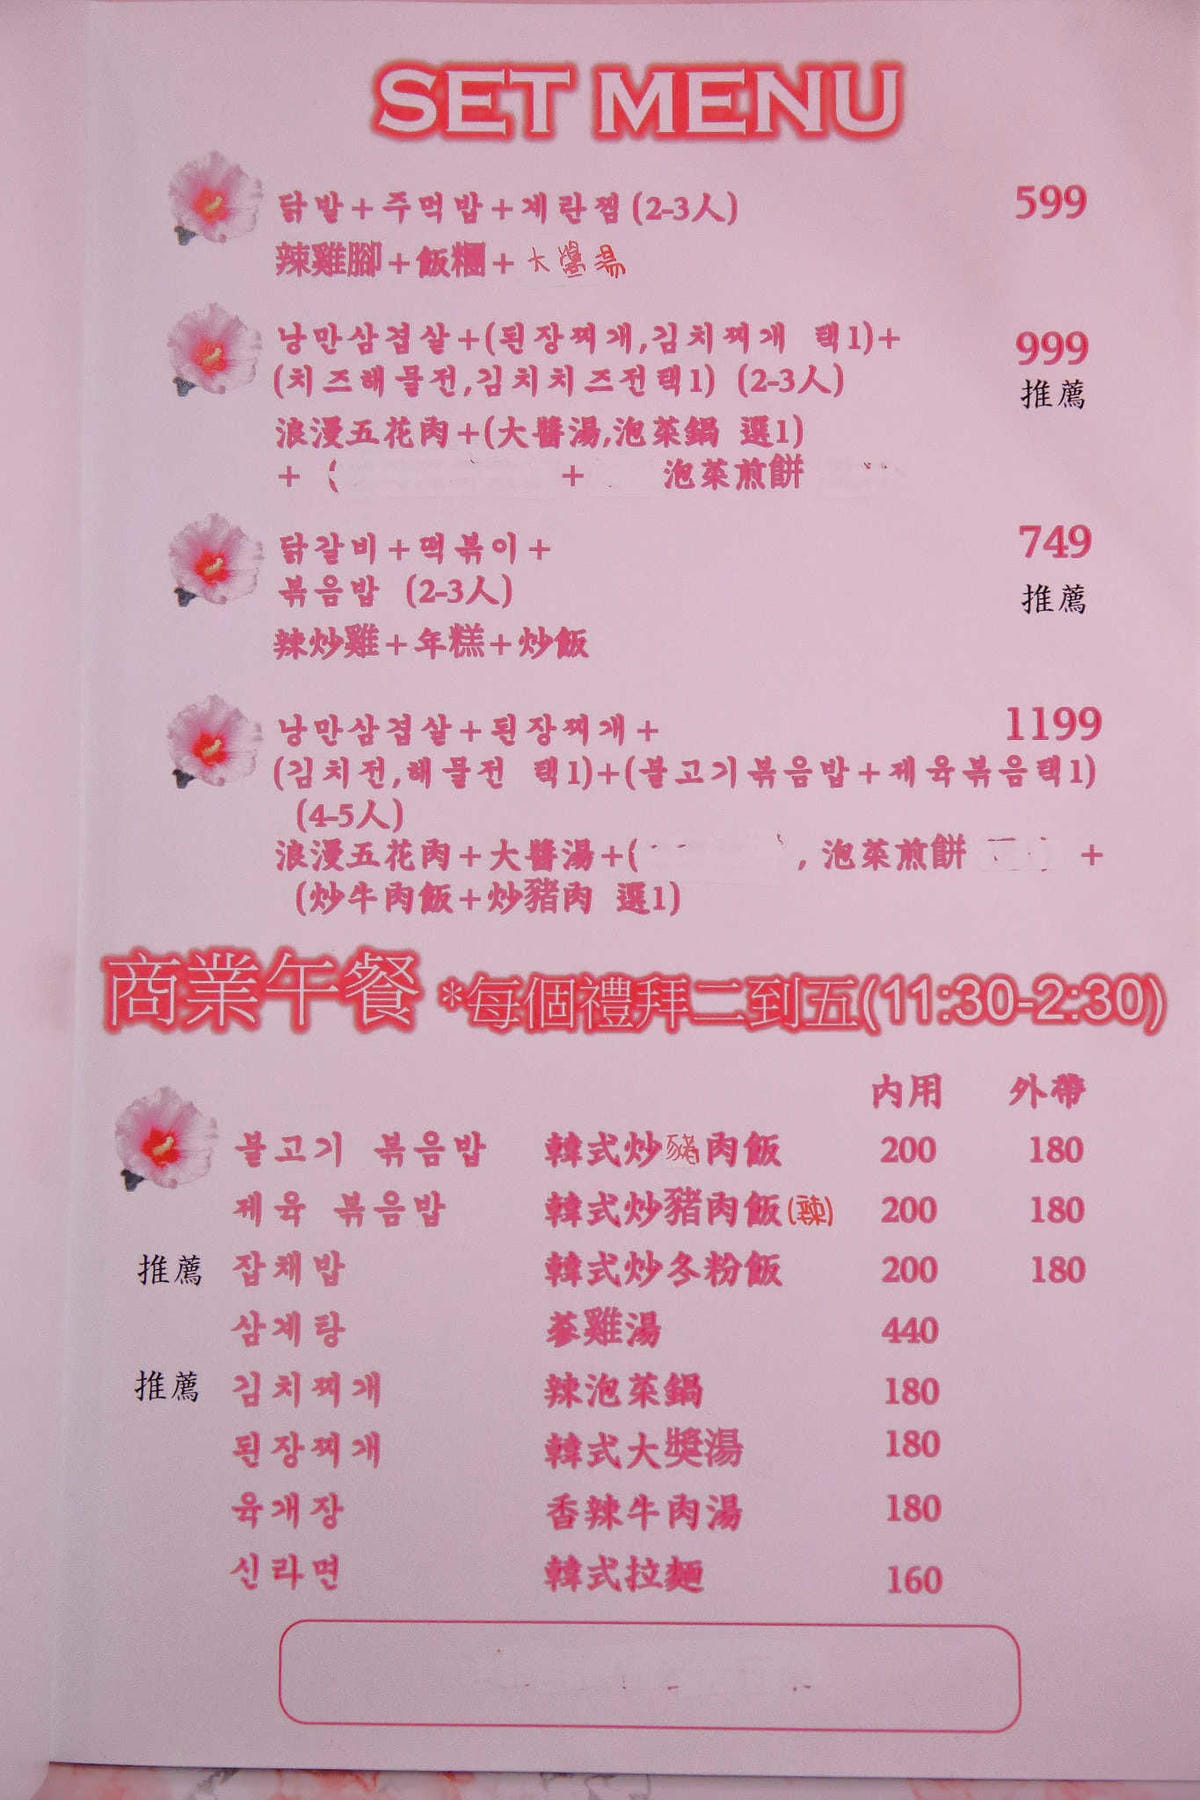 SET MENU
닭발+주먹밥+계란찜(2-3人) 599
辣雞腳+飯糰+大醬湯
낭만삼겹살+(된장찌개,김치찌개 택1)+ 999
(치즈해물전,김치치즈전택1) (2-3人) 推薦
浪漫五花肉+(大醬湯,泡菜鍋 選1)
+ ( + 泡菜煎餅
닭갈비+떡볶이+ 749
볶음밥 (2-3人) 推薦
辣炒雞+年糕+炒飯
낭만삼겹살+된장찌개+ 1199
(김치전,해물전 택1)+(불고기볶음밥+제육볶음택1)
(4-5人)
浪漫五花肉+大醬湯+( , 泡菜煎餅 +
(炒牛肉飯+炒豬肉 選1)
商業午餐 *每個禮拜二到五(11:30-2:30)
內用 外帶
불고기 볶음밥 韓式炒豬肉飯 200 180
제육 볶음밥 韓式炒豬肉飯(辣) 200 180
推薦 잡채밥 韓式炒冬粉飯 200 180
삼계탕 蔘雞湯 440
推薦 김치찌개 辣泡菜鍋 180
된장찌개 韓式大獎湯 180
육개장 香辣牛肉湯 180
신라면 韓式拉麵 160